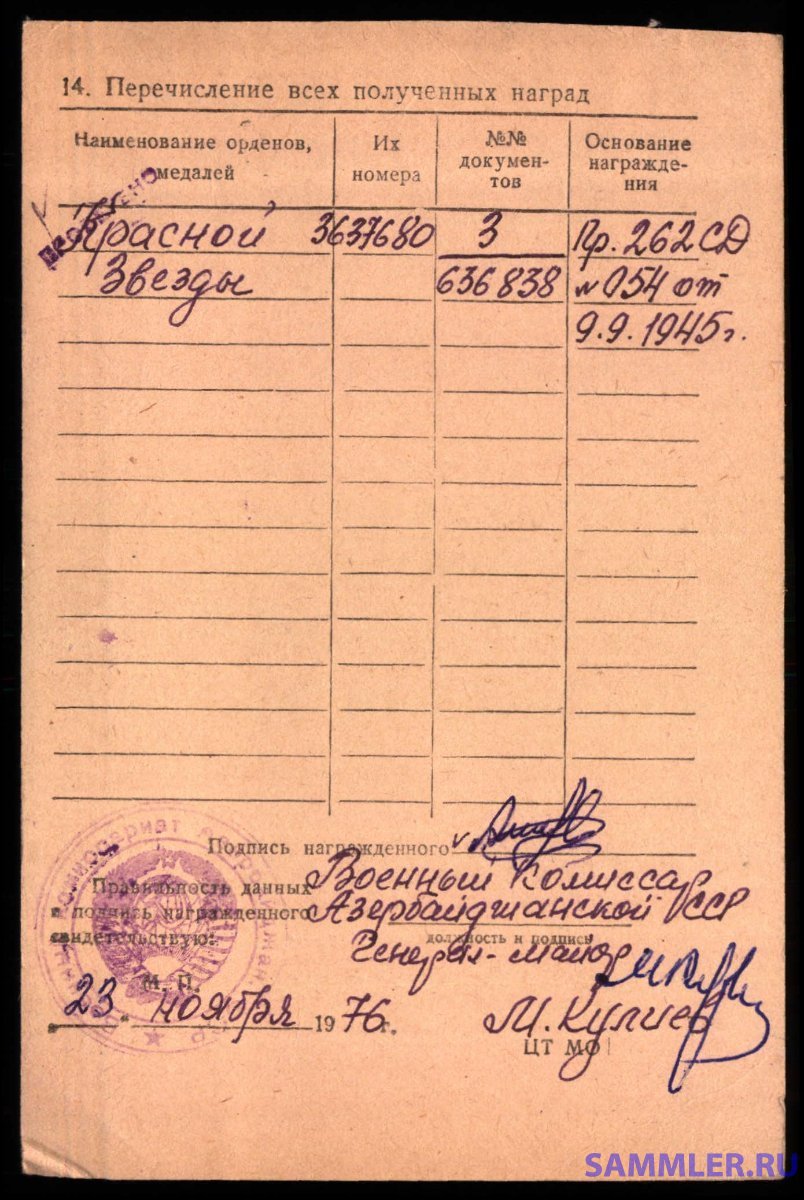 14. Перечисление всех полученных наград
Наименование орденов, медалей
Их номера
№№ документов
Основание награждения
ПРОВЕРЕНО
"Красной Звезды"
3637680
3
636838
Пр. 262 СД
№ 054 от
9.9.1945 г.
Подпись награжденного
Правильность данных
и подпись награжденного
свидетельствую:
Военный Комиссар
Азербайджанской ССР
должность и подпись
Генерал-майор
М. П.
"23" ноября 1976 г.
М. Кулиев
ЦТ МО
SAMMLER.RU